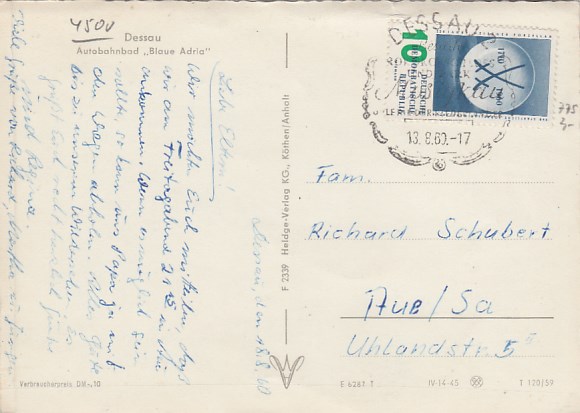 4500
Dessau
Autobahnbad „Blaue Adria"
Dessau, den 13.8.60
Liebe Eltern!
Wir möchten Euch mitteilen, daß
wir am Freitagabend in Aue
ankommen. Wenn es möglich sein
sollte, so kann uns Papa ja mit
dem Wagen abholen. Alles Gute
bis zu unserem Wiedersehen. Es
grüßt Euch recht herzlich
und Regina.
Viele Grüße von Richard,
Verbraucherpreis DM -,10
F 2339 Heldge-Verlag KG., Köthen/Anhalt
DESSAU
13.8.60.-17
10
DEUTSCHE
DEMOKRATISCHE
REPUBLIK
1710
1960
775
Fam.
Richard Schubert
Aue/Sa
Uhlandstr. 5
E 6287 T
IV-14-45
T 120/59